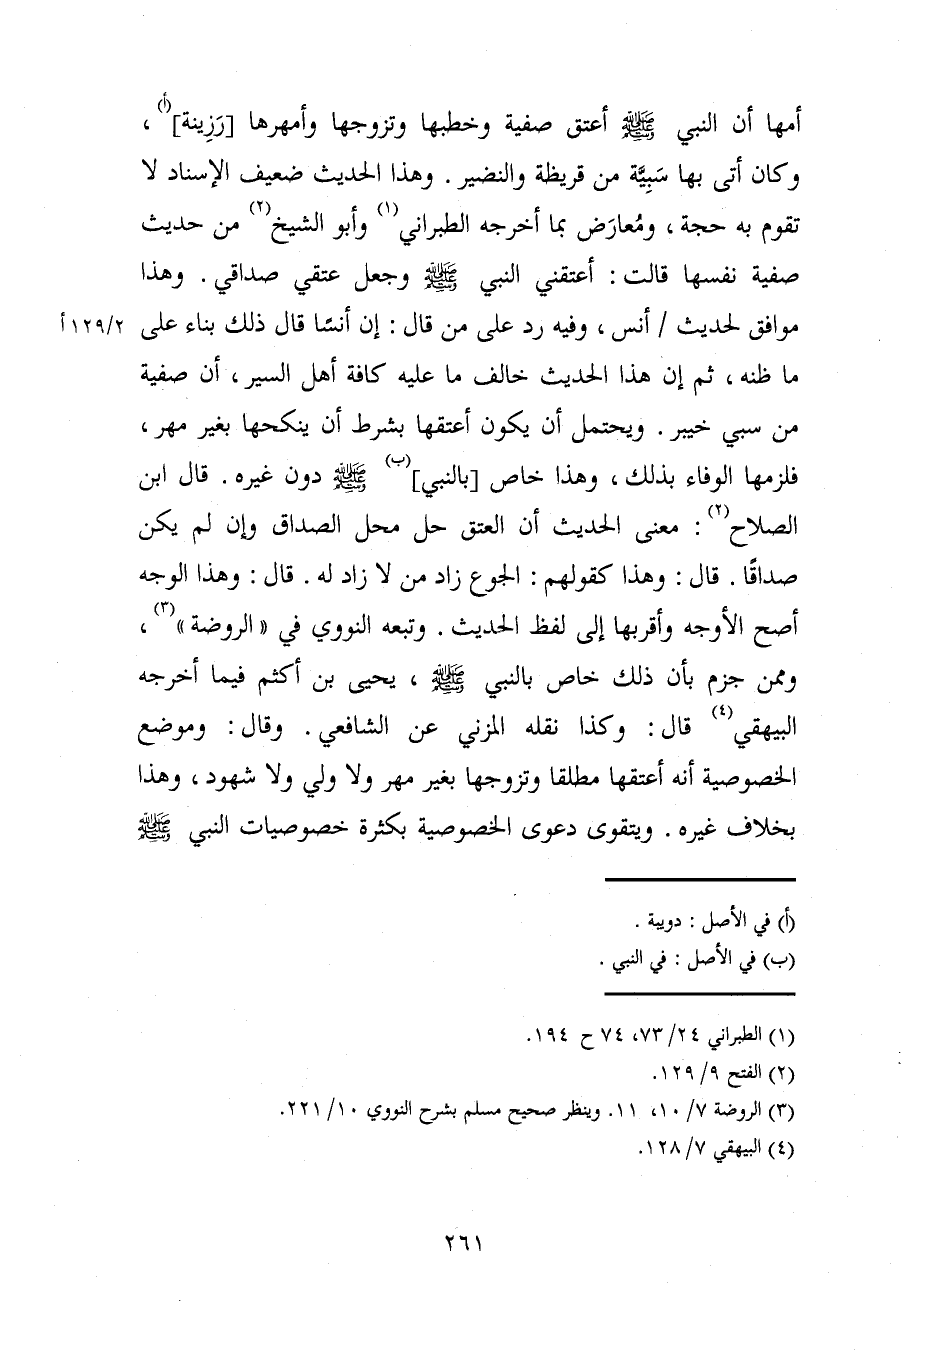 أمها أن النبي ﷺ أعتق صفية وخطبها وتزوجها وأمهرها [رَزِينة](أ) ،
وكان أتى بها سَبِيَّة من قريظة والنضير . وهذا الحديث ضعيف الإسناد لا
تقوم به حجة ، ومُعارَض بما أخرجه الطبراني(١) وأبو الشيخ(٢) من حديث
صفية نفسها قالت : أعتقني النبي ﷺ وجعل عتقي صداقي . وهذا
موافق لحديث / أنس ، وفيه رد على من قال : إن أنسًا قال ذلك بناء على ١٢٩/٢أ
ما ظنه ، ثم إن هذا الحديث خالف ما عليه كافة أهل السير ، أن صفية
من سبي خيبر . ويحتمل أن يكون أعتقها بشرط أن ينكحها بغير مهر ،
فلزمها الوفاء بذلك ، وهذا خاص [بالنبي](ب) ﷺ دون غيره . قال ابن
الصلاح(٢) : معنى الحديث أن العتق حل محل الصداق وإن لم يكن
صداقًا . قال : وهذا كقولهم : الجوع زاد من لا زاد له . قال : وهذا الوجه
أصح الأوجه وأقربها إلى لفظ الحديث . وتبعه النووي في «الروضة»(٣) ،
وممن جزم بأن ذلك خاص بالنبي ﷺ ، يحيى بن أكثم فيما أخرجه
البيهقي(٤) قال : وكذا نقله المزني عن الشافعي . وقال : وموضع
الخصوصية أنه أعتقها مطلقا وتزوجها بغير مهر ولا ولي ولا شهود ، وهذا
بخلاف غيره . ويتقوى دعوى الخصوصية بكثرة خصوصيات النبي ﷺ
(أ) في الأصل : دويبة .
(ب) في الأصل : في النبي .
(١) الطبراني ٢٤/ ٧٣، ٧٤ ح ١٩٤.
(٢) الفتح ٩/ ١٢٩.
(٣) الروضة ٧/ ١٠، ١١. وينظر صحيح مسلم بشرح النووي ١٠/ ٢٢١.
(٤) البيهقي ٧/ ١٢٨.
٢٦١